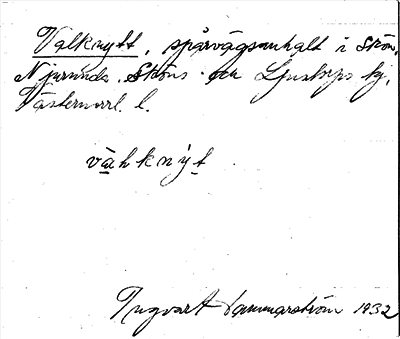 Valknytt, spårvägsanhalt i Skön,
Njurunda, Sköns och Ljustorps hg,
Västernorrl. l.
vähknýt
Ingvart Hammarström 1932